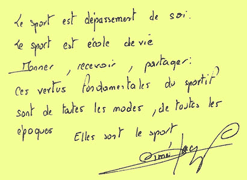 Le sport est dépassement de soi.
Le sport est école de vie
Donner, recevoir, partager:
Ces vertus fondamentales du sportif
sont de toutes les modes, de toutes les
époques Elles sont le sport
Aimé Jacquet